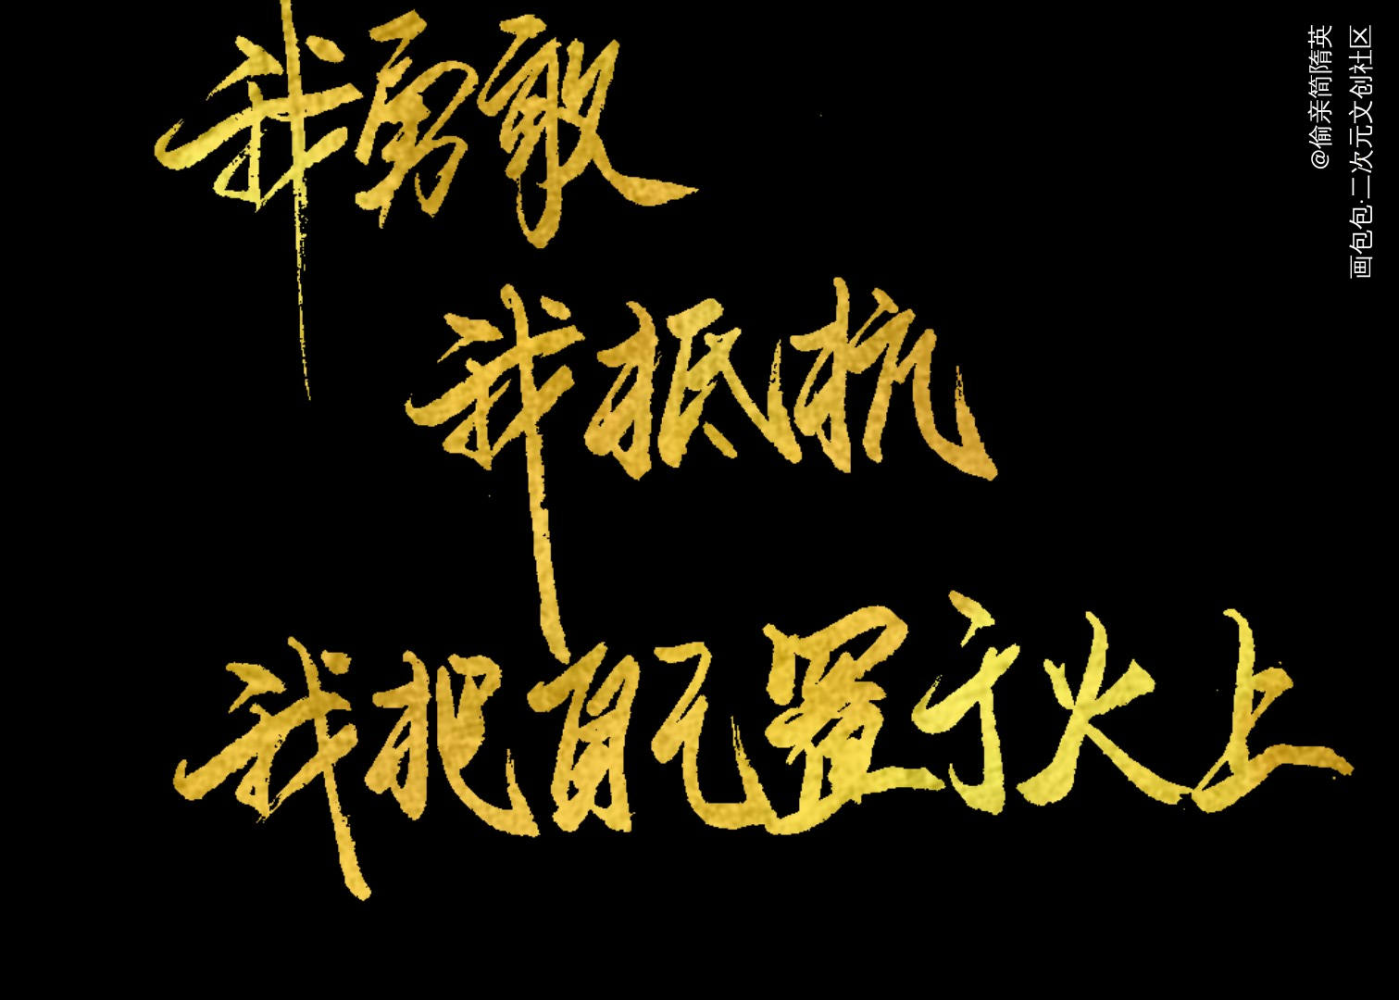 我勇敢
我抵抗
我把自己置于火上
@偷亲简隋英
画包包·二次元文创社区